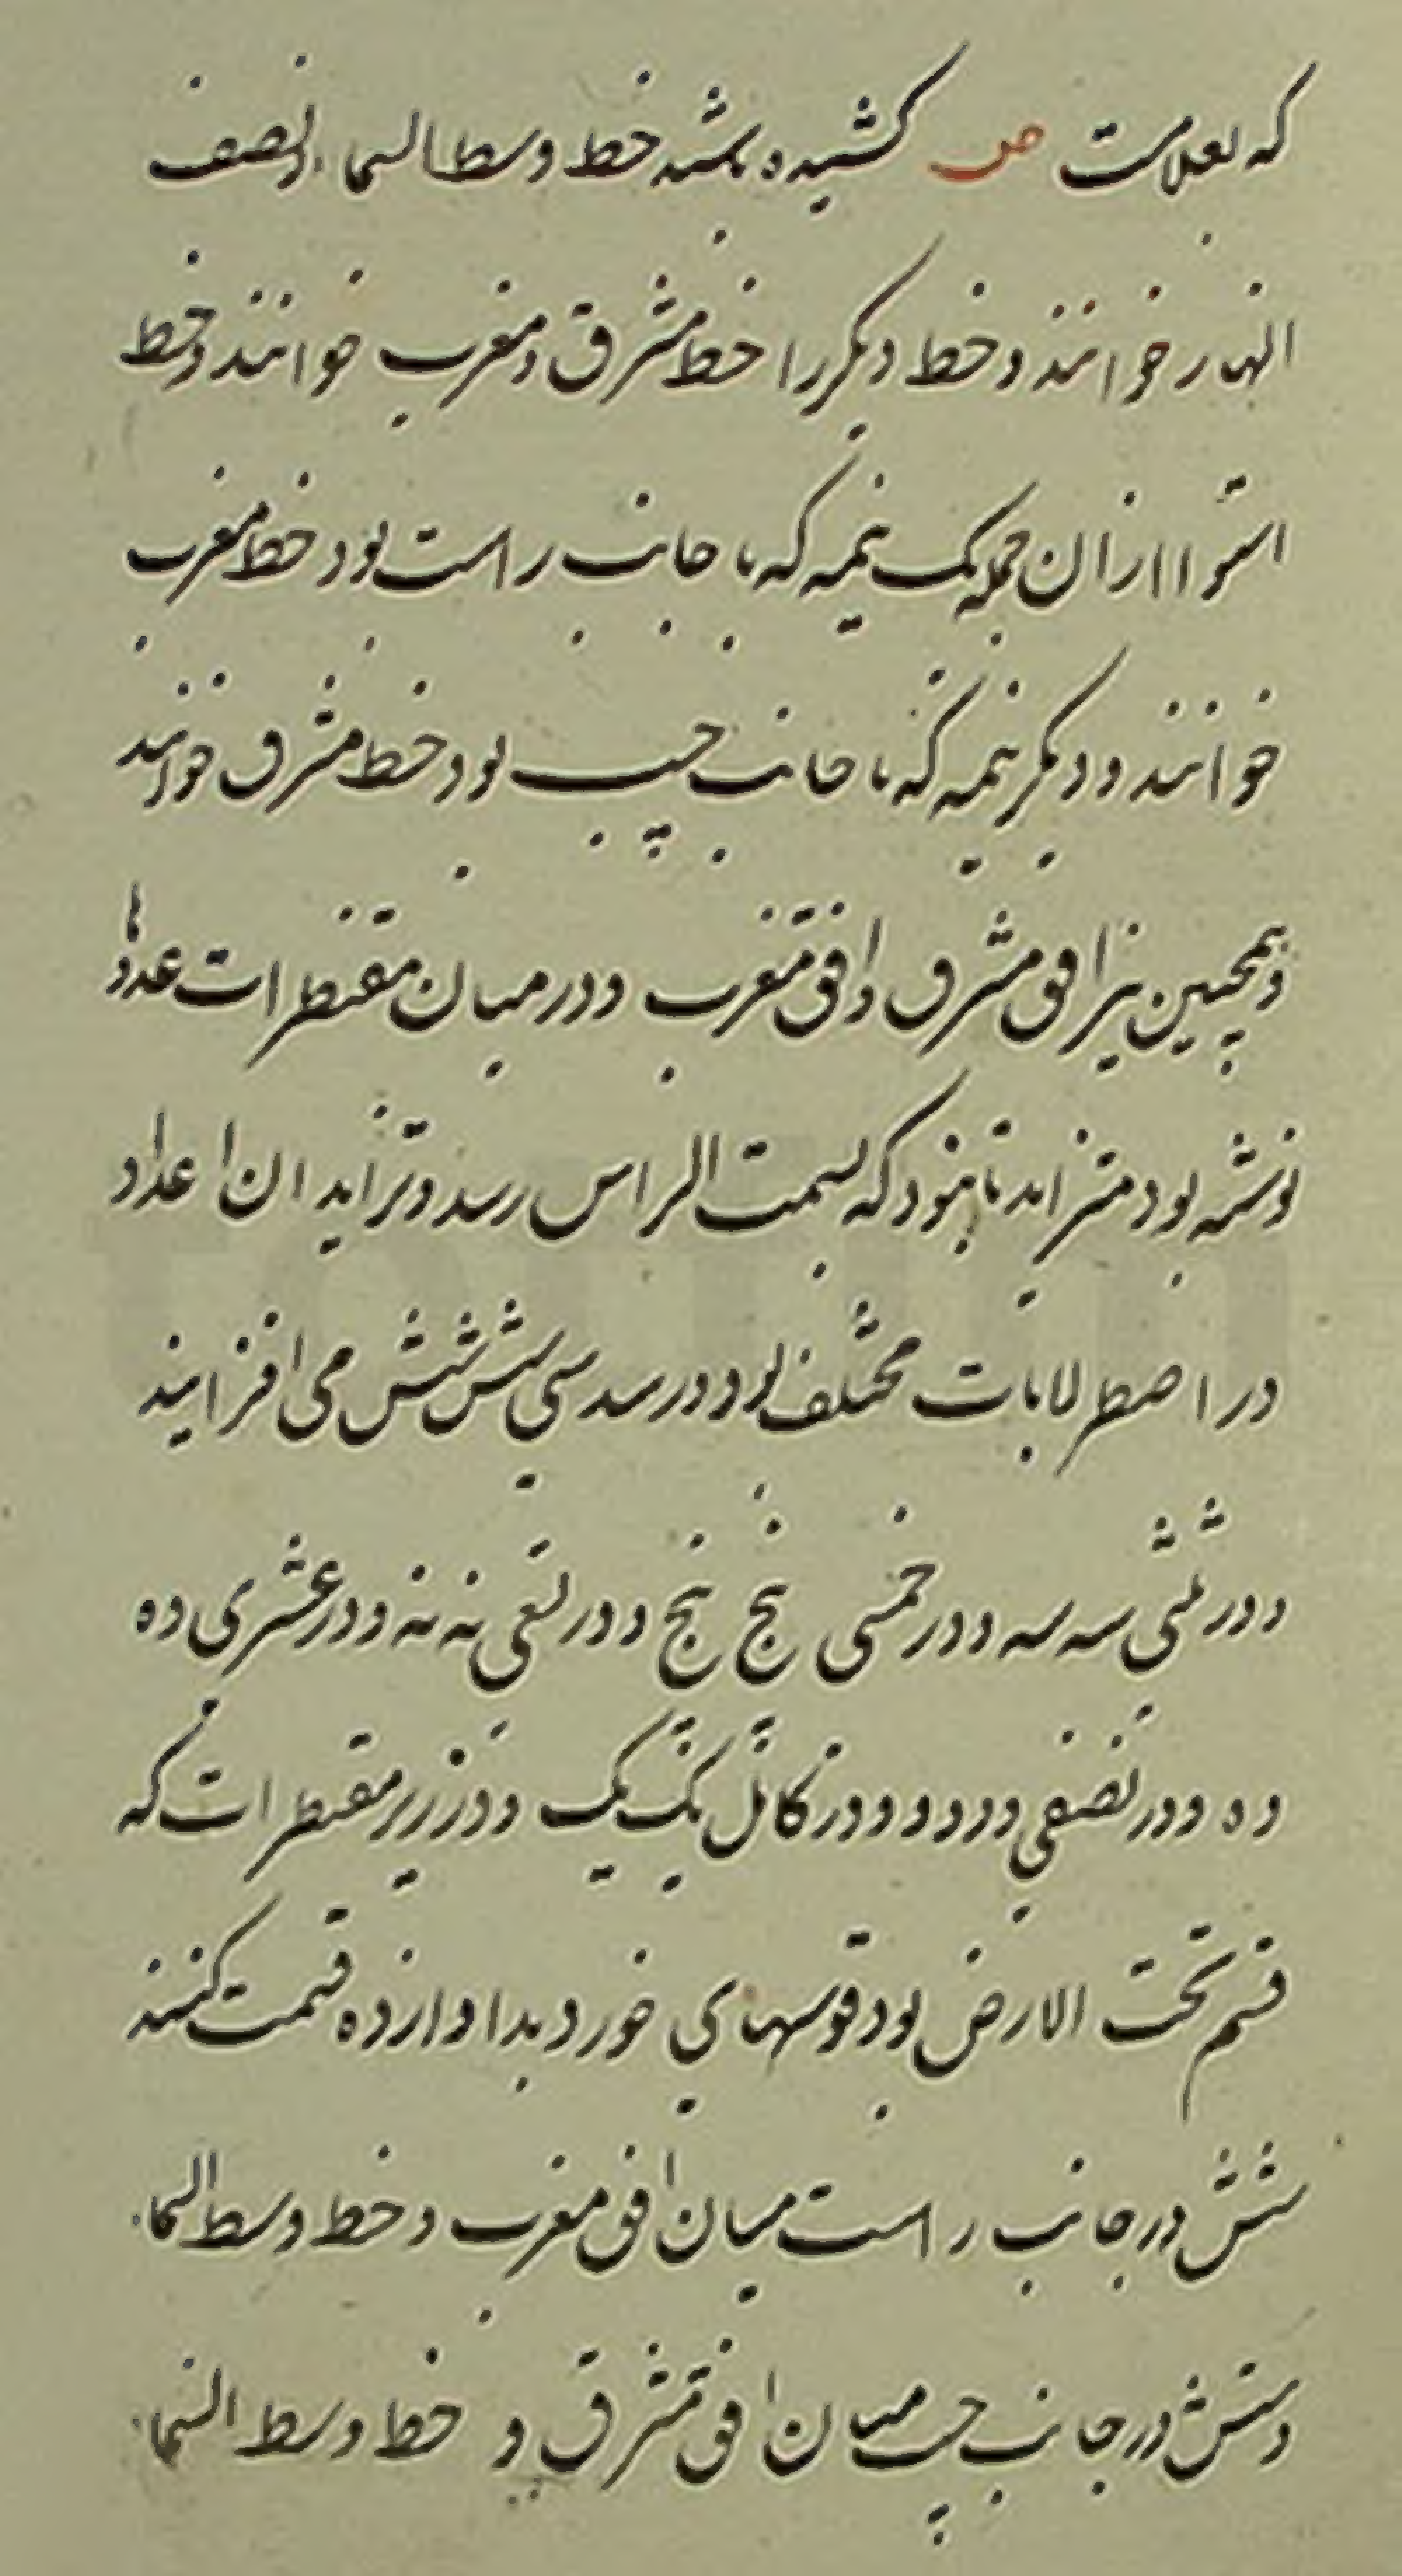 که بعلامت ص کشیده باشد خط وسط السماء و نصف
النهار خوانند و خط دیگر را خط مشرق و مغرب خوانند و خط
استوا از ان جمله یک نیمه که با جانب راست بود خط مغرب
خوانند و دیگر نیمه که با جانب چپ بود خط مشرق خوانند
و همچنین نیز افق مشرق و افق مغرب و در میان مقنطرات عددها
نوشته بود متزاید تا بنود که بسمت الراس رسد و تزاید ان اعداد
در اصطرلابات مختلف بود در سدسی شش شش می افزایند
و در ثلثی سه سه و در خمسی پنج پنج و در تسعی نه نه و در عشری ده
ده و در نصفی دو دو و در کامل یک یک و در زیر مقنطرات که
قسم تحت الارض بود قوسهای خورد بدوازده قسمت کنند
شش در جانب راست میان افق مغرب و خط وسط السماء
و شش در جانب چپ میان افق مشرق و خط وسط السماء